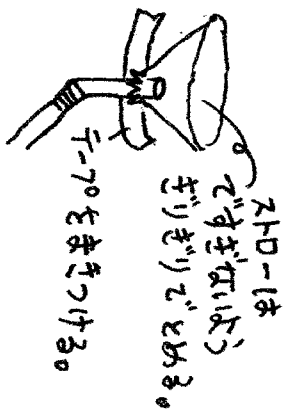 ストローは
ですぎないよう
ぎりぎりでとめる。
テープをまきつける。